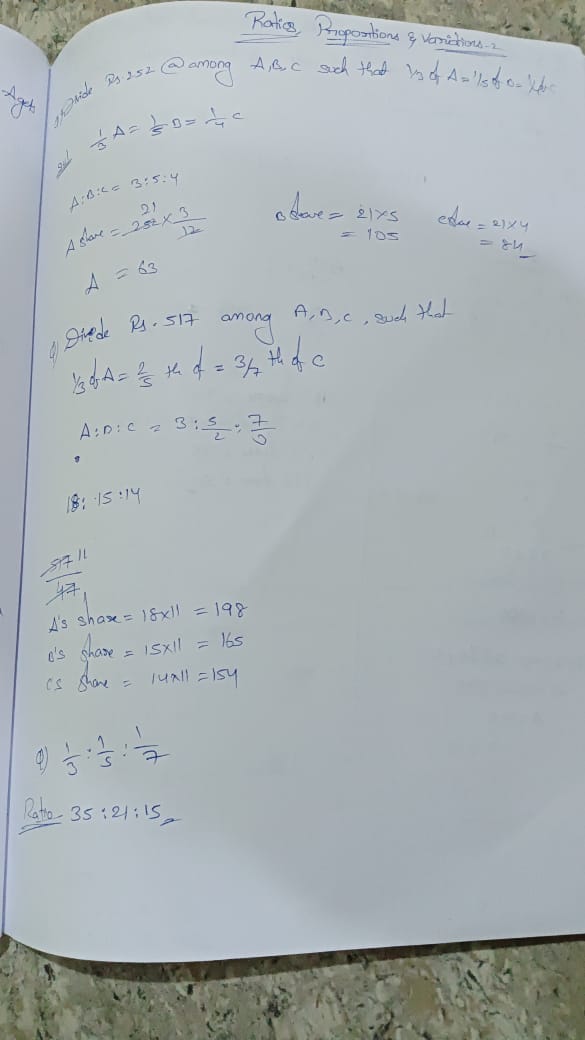 Ratios, Proportions & Variations-2
Ages
1) Divide Rs. 252 @ among A, B, C such that 1/3 of A = 1/5 of B = 1/4 of C
sol 1/3 A = 1/5 B = 1/4 C
A:B:C = 3:5:4
A share = 252 21 × 3/12
A = 63
B share = 21×5
= 105
C share = 21×4
= 84
Q) Divide Rs. 517 among A, B, C, such that
1/3 of A = 2/5 th of = 3/7 th of C
A:B:C = 3 : 5/2 : 7/3
18 : 15 : 14
517 11
47
A's share = 18×11 = 198
B's share = 15×11 = 165
C's share = 14×11 = 154
Q) 1/3 : 1/5 : 1/7
Ratio 35 : 21 : 15